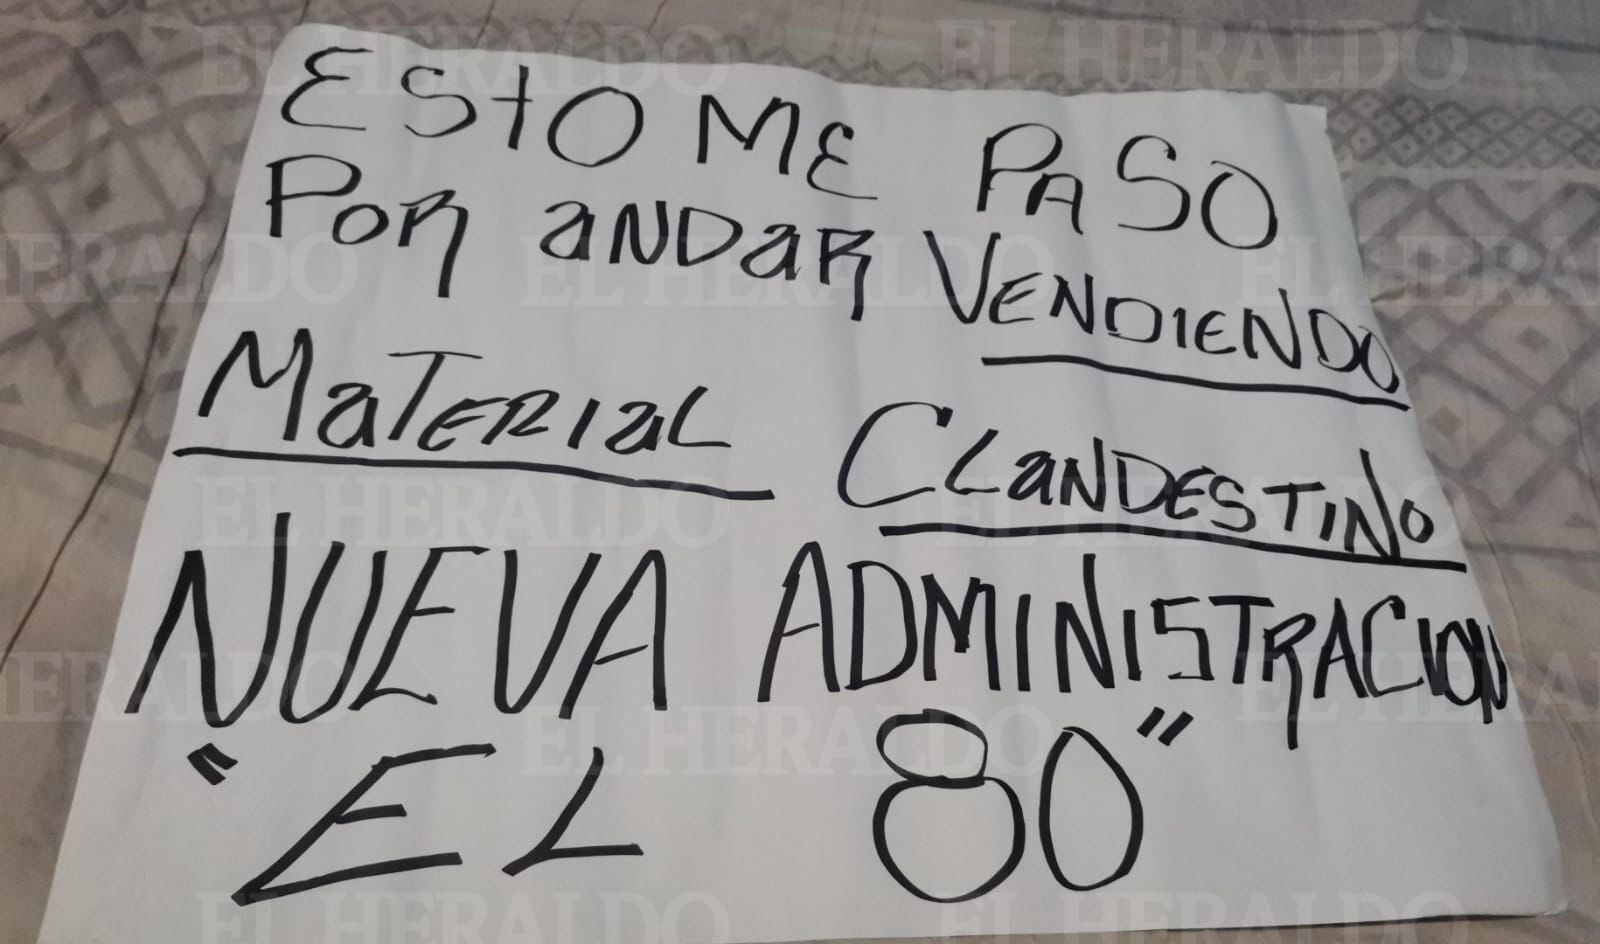 ESTO ME PASO
POR ANDAR VENDIENDO
MATERIAL CLANDESTINO
NUEVA ADMINISTRACION
"EL 80"
EL HERALDO EL HERALDO
HERALDO EL HERALDO EL HERA
EL HERALDO EL HERALDO
HERALDO EL HERALDO EL HERA
EL HERALDO EL HERALDO